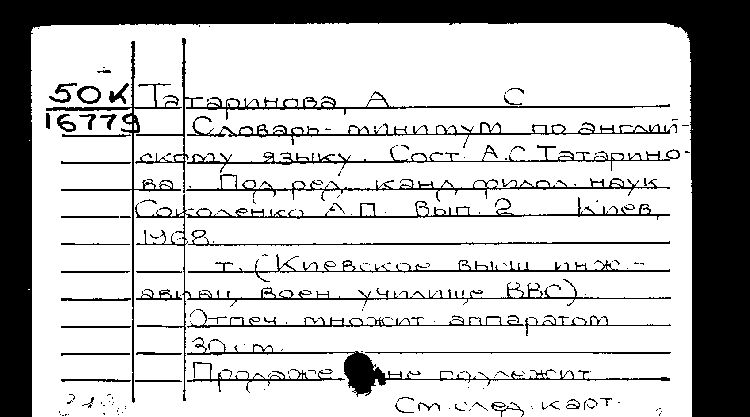 50К Татаринова, А С
16779 Словарь-минимум по англий-
скому языку. Сост. А.С. Татарино-
ва. Под ред. канд. филол. наук
Соколенко А.П. Вып. 2 Киев,
1968.
т. (Киевское высш инж.-
авиац. воен. училище ВВС)
Отпеч. множит. аппаратом
30 см.
Продаже не подлежит
См. след. карт.